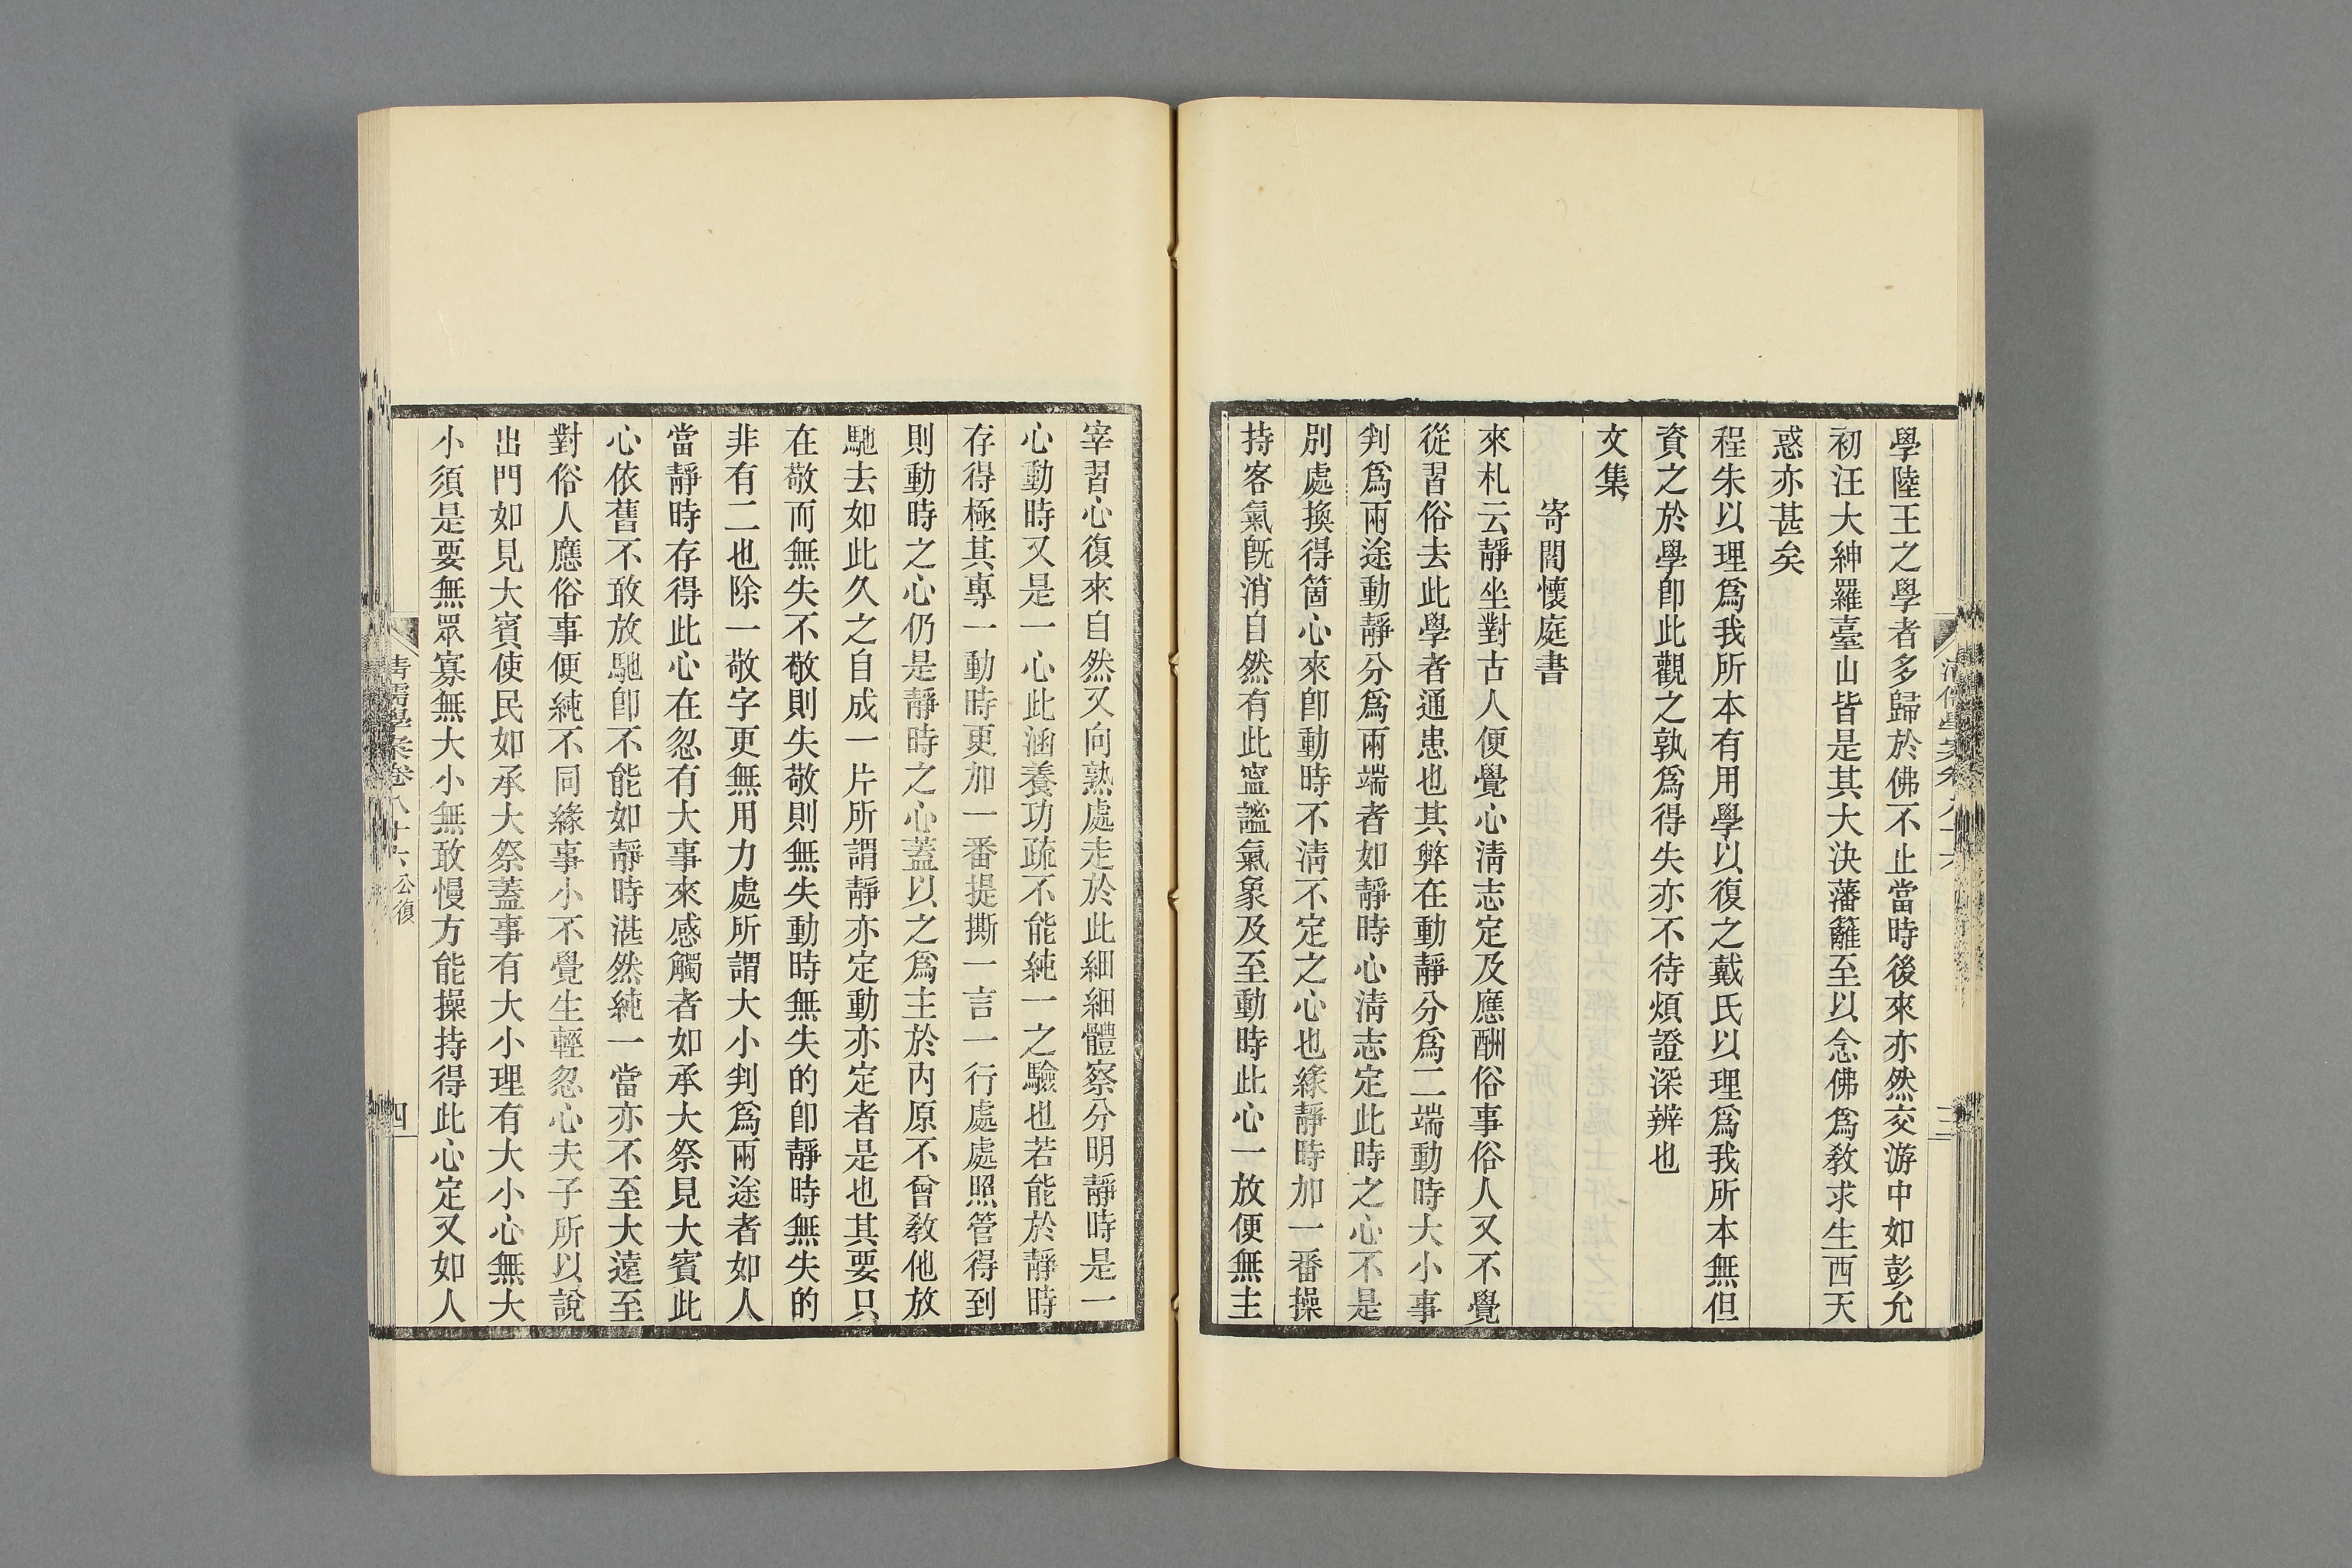 學陸王之學者多歸於佛不止當時後來亦然交游中如彭允
初汪大紳羅臺山皆是其大決藩籬至以念佛爲敎求生西天
惑亦甚矣
程朱以理爲我所本有用學以復之戴氏以理爲我所本無但
資之於學卽此觀之孰爲得失亦不待煩證深辨也
文集
寄閻懷庭書
來札云靜坐對古人便覺心淸志定及應酬俗事俗人又不覺
從習俗去此學者通患也其弊在動靜分爲二端動時大小事
判爲兩途動靜分爲兩端者如靜時心淸志定此時之心不是
別處換得箇心來卽動時不淸不定之心也緣靜時加一番操
持客氣旣消自然有此寧謐氣象及至動時此心一放便無主
宰習心復來自然又向熟處走於此細細體察分明靜時是一
心動時又是一心此涵養功疏不能純一之驗也若能於靜時
存得極其專一動時更加一番提撕一言一行處處照管得到
則動時之心仍是靜時之心蓋以之爲主於內原不曾敎他放
馳去如此久之自成一片所謂靜亦定動亦定者是也其要只
在敬而無失不敬則失敬則無失動時無失的卽靜時無失的
非有二也除一敬字更無用力處所謂大小判爲兩途者如人
當靜時存得此心在忽有大事來感觸者如承大祭見大賓此
心依舊不敢放馳卽不能如靜時湛然純一當亦不至大遠至
對俗人應俗事便純不同緣事小不覺生輕忽心夫子所以說
出門如見大賓使民如承大祭蓋事有大小理有大小心無大
小須是要無眾寡無大小無敢慢方能操持得此心定又如人
淸儒學案卷八十六 公復
四